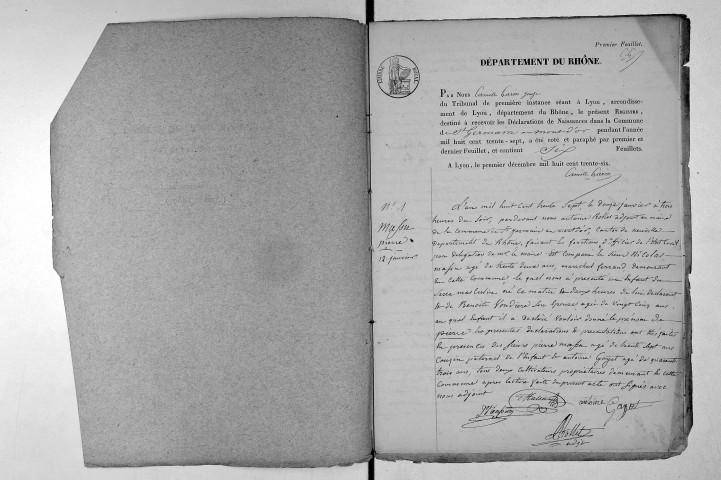 Premier Feuillet.
DÉPARTEMENT DU RHÔNE.
PAR NOUS Camille Caron juge
du Tribunal de première instance séant à Lyon, arrondisse-
ment de Lyon, département du Rhône, le présent REGISTRE,
destiné à recevoir les Déclarations de Naissances dans la Commune
de St Germain au mont d'or pendant l'année
mil huit cent trente-sept, a été coté et paraphé par premier et
dernier Feuillet, et contient Six Feuillets.
A Lyon, le premier décembre mil huit cent trente-six.
N° 1
pierre
12 janvier
L'an mil huit cent trente Sept, le douze janvier a trois
heures du Soir, pardevant nous antoine adjoint au maire
de la commune de St germain au mont d'or, canton de neuville
Departement du Rhône, faisant les fonctions d'officier de l'état civil
par delegation de mr le maire est comparu le Sieur Nicolas
agé de trente deux ans, marechal ferrand demeurant
en cette commune lequel nous a presenté un Enfant du
Sexe masculin né ce matin a deux heures de lui declarant
& de Benoite Son Epouse agée de vingt cinq ans
au quel Enfant il a declaré vouloir donner le prenom de
pierre les presentes declarations & presentations ont été faites
En presence des Sieurs pierre agé de trente Sept ans
Cousin paternel de l'Enfant & antoine agé de quarante
trois ans, tous deux cultivateurs proprietaires demeurant en cette
Commune apres lecture faite du present acte ont signés avec
nous adjoint